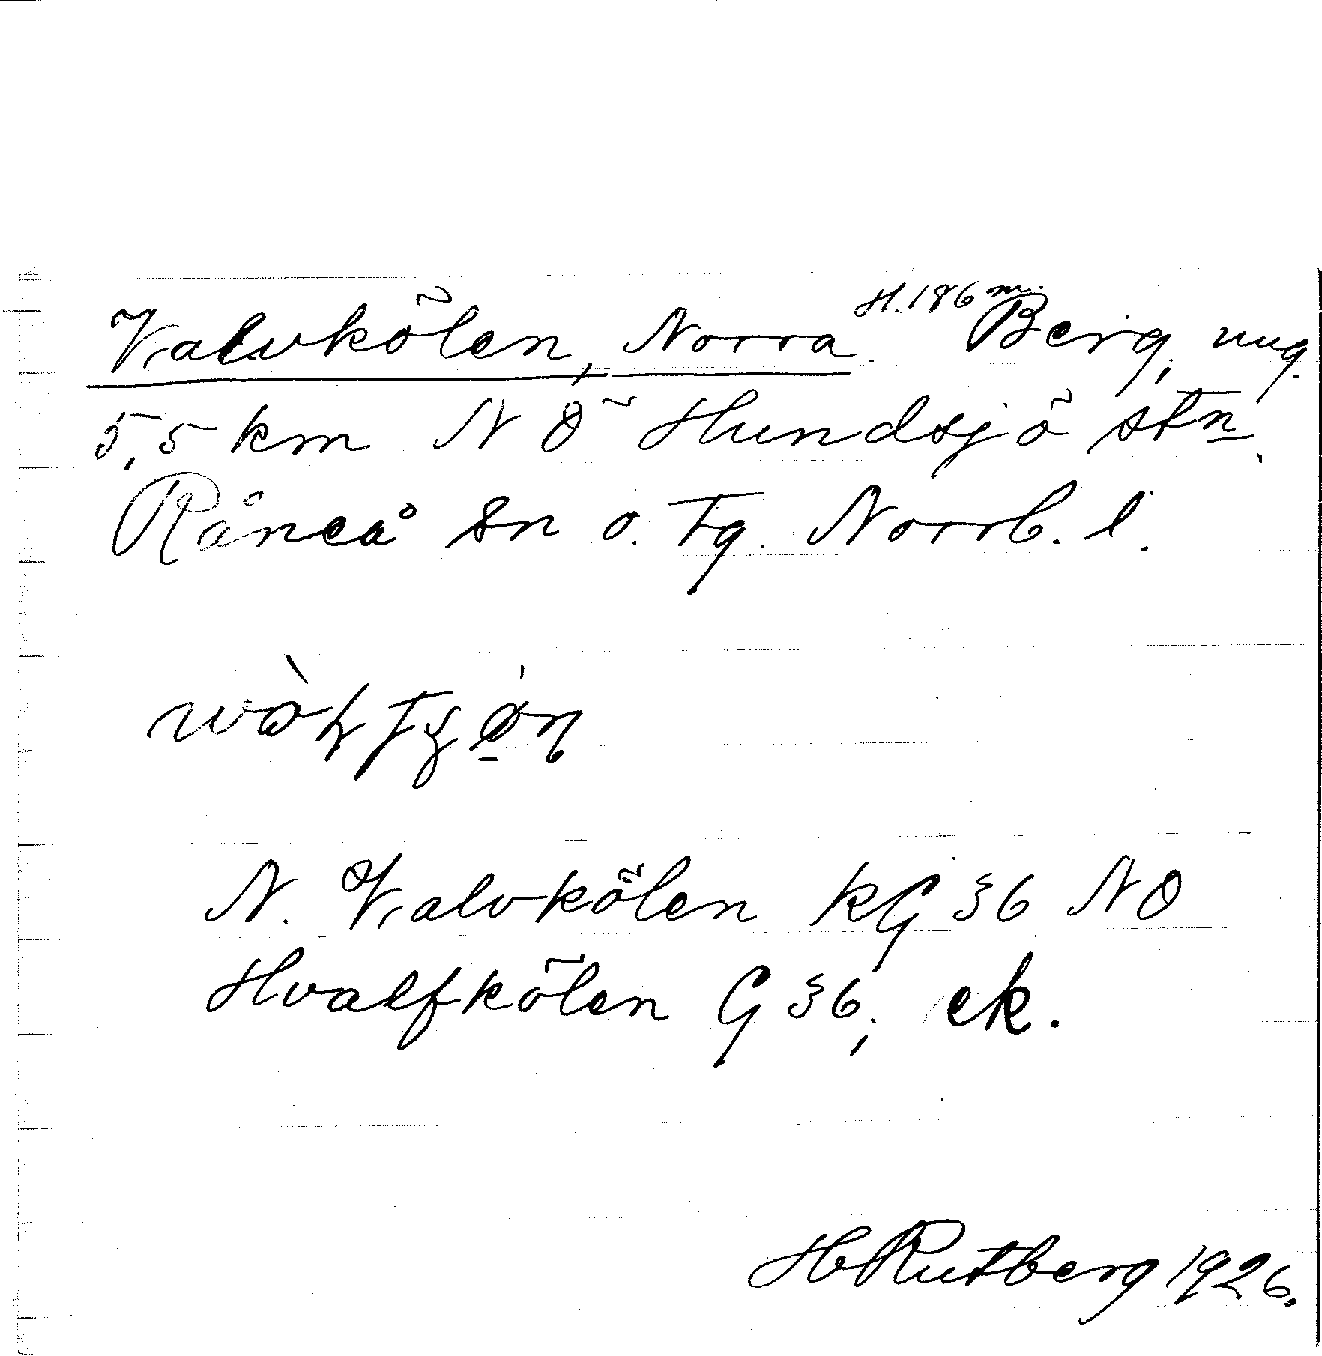 Valvkölen, Norra. H. 186 m. Berg, ung.
5,5 km N Ö Hundsjö stn.
Råneå sn o. tg. Norrb. l.
N. Valvkölen KG 36 NO
Hvalfkölen G 36, ek.
H Rutberg 1926.